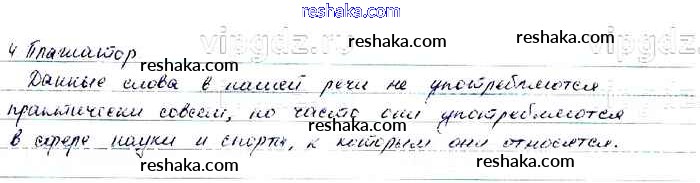 reshaka.com
4 Плашактор
reshaka.com
vipgdz.ru
Данные слова в нашей речи не употребляются
практически совсем, но часто они употребляются
в сфере науки и спорта, к которым они относятся.
reshaka.com
reshaka.com
reshaka.com
reshaka.com
reshaka.com